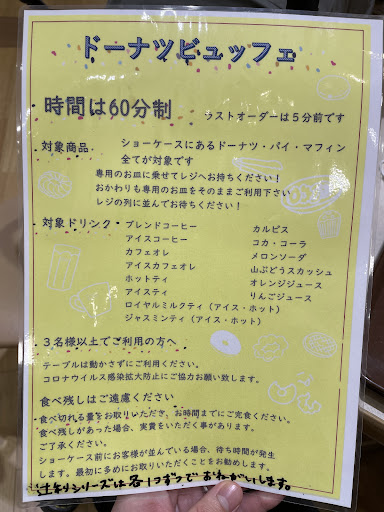 ドーナツビュッフェ
時間は60分制 ラストオーダーは5分前です
対象商品 ショーケースにあるドーナツ・パイ・マフィン
全てが対象です
専用のお皿に乗せてレジへお持ちください!
おかわりも専用のお皿をそのままご利用下さい
レジの列に並んでお待ちください!
対象ドリンク ブレンドコーヒー カルピス
アイスコーヒー コカ・コーラ
カフェオレ メロンソーダ
アイスカフェオレ 山ぶどうスカッシュ
ホットティ オレンジジュース
アイスティ りんごジュース
ロイヤルミルクティ(アイス・ホット)
ジャスミンティ(アイス・ホット)
3名様以上でご利用の方へ
テーブルは動かさずにご利用ください。
コロナウイルス感染拡大防止にご協力お願い致します。
食べ残しはご遠慮ください
食べ切れる量をお取りいただき、お時間までにご完食ください。
食べ残しがあった場合、実費をいただく事があります。
ご了承ください。
ショーケース前にお客様が並んでいる場合、待ち時間が発生
します。最初に多めにお取りいただくことをお勧めします。
辻利シリーズは各1コずつでおねがいします。